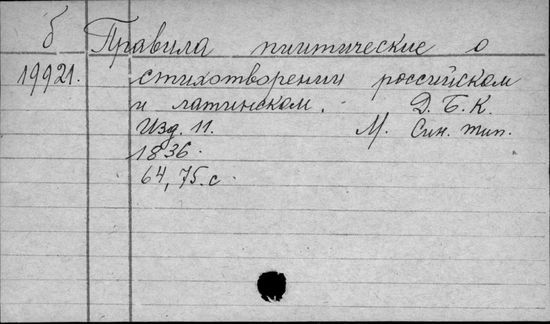 б Правила пиитические о
19921. стихотворении российском
и латинском. Д. Б. К.
Изд. 11. М. Син. тип.
1836.
64, 75. с.